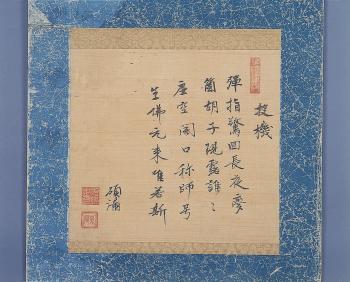 投機
彈指驚回長夜夢
箇胡子現露誰〻
虛空開口稱師号
生佛元来唯若斯
碩誦